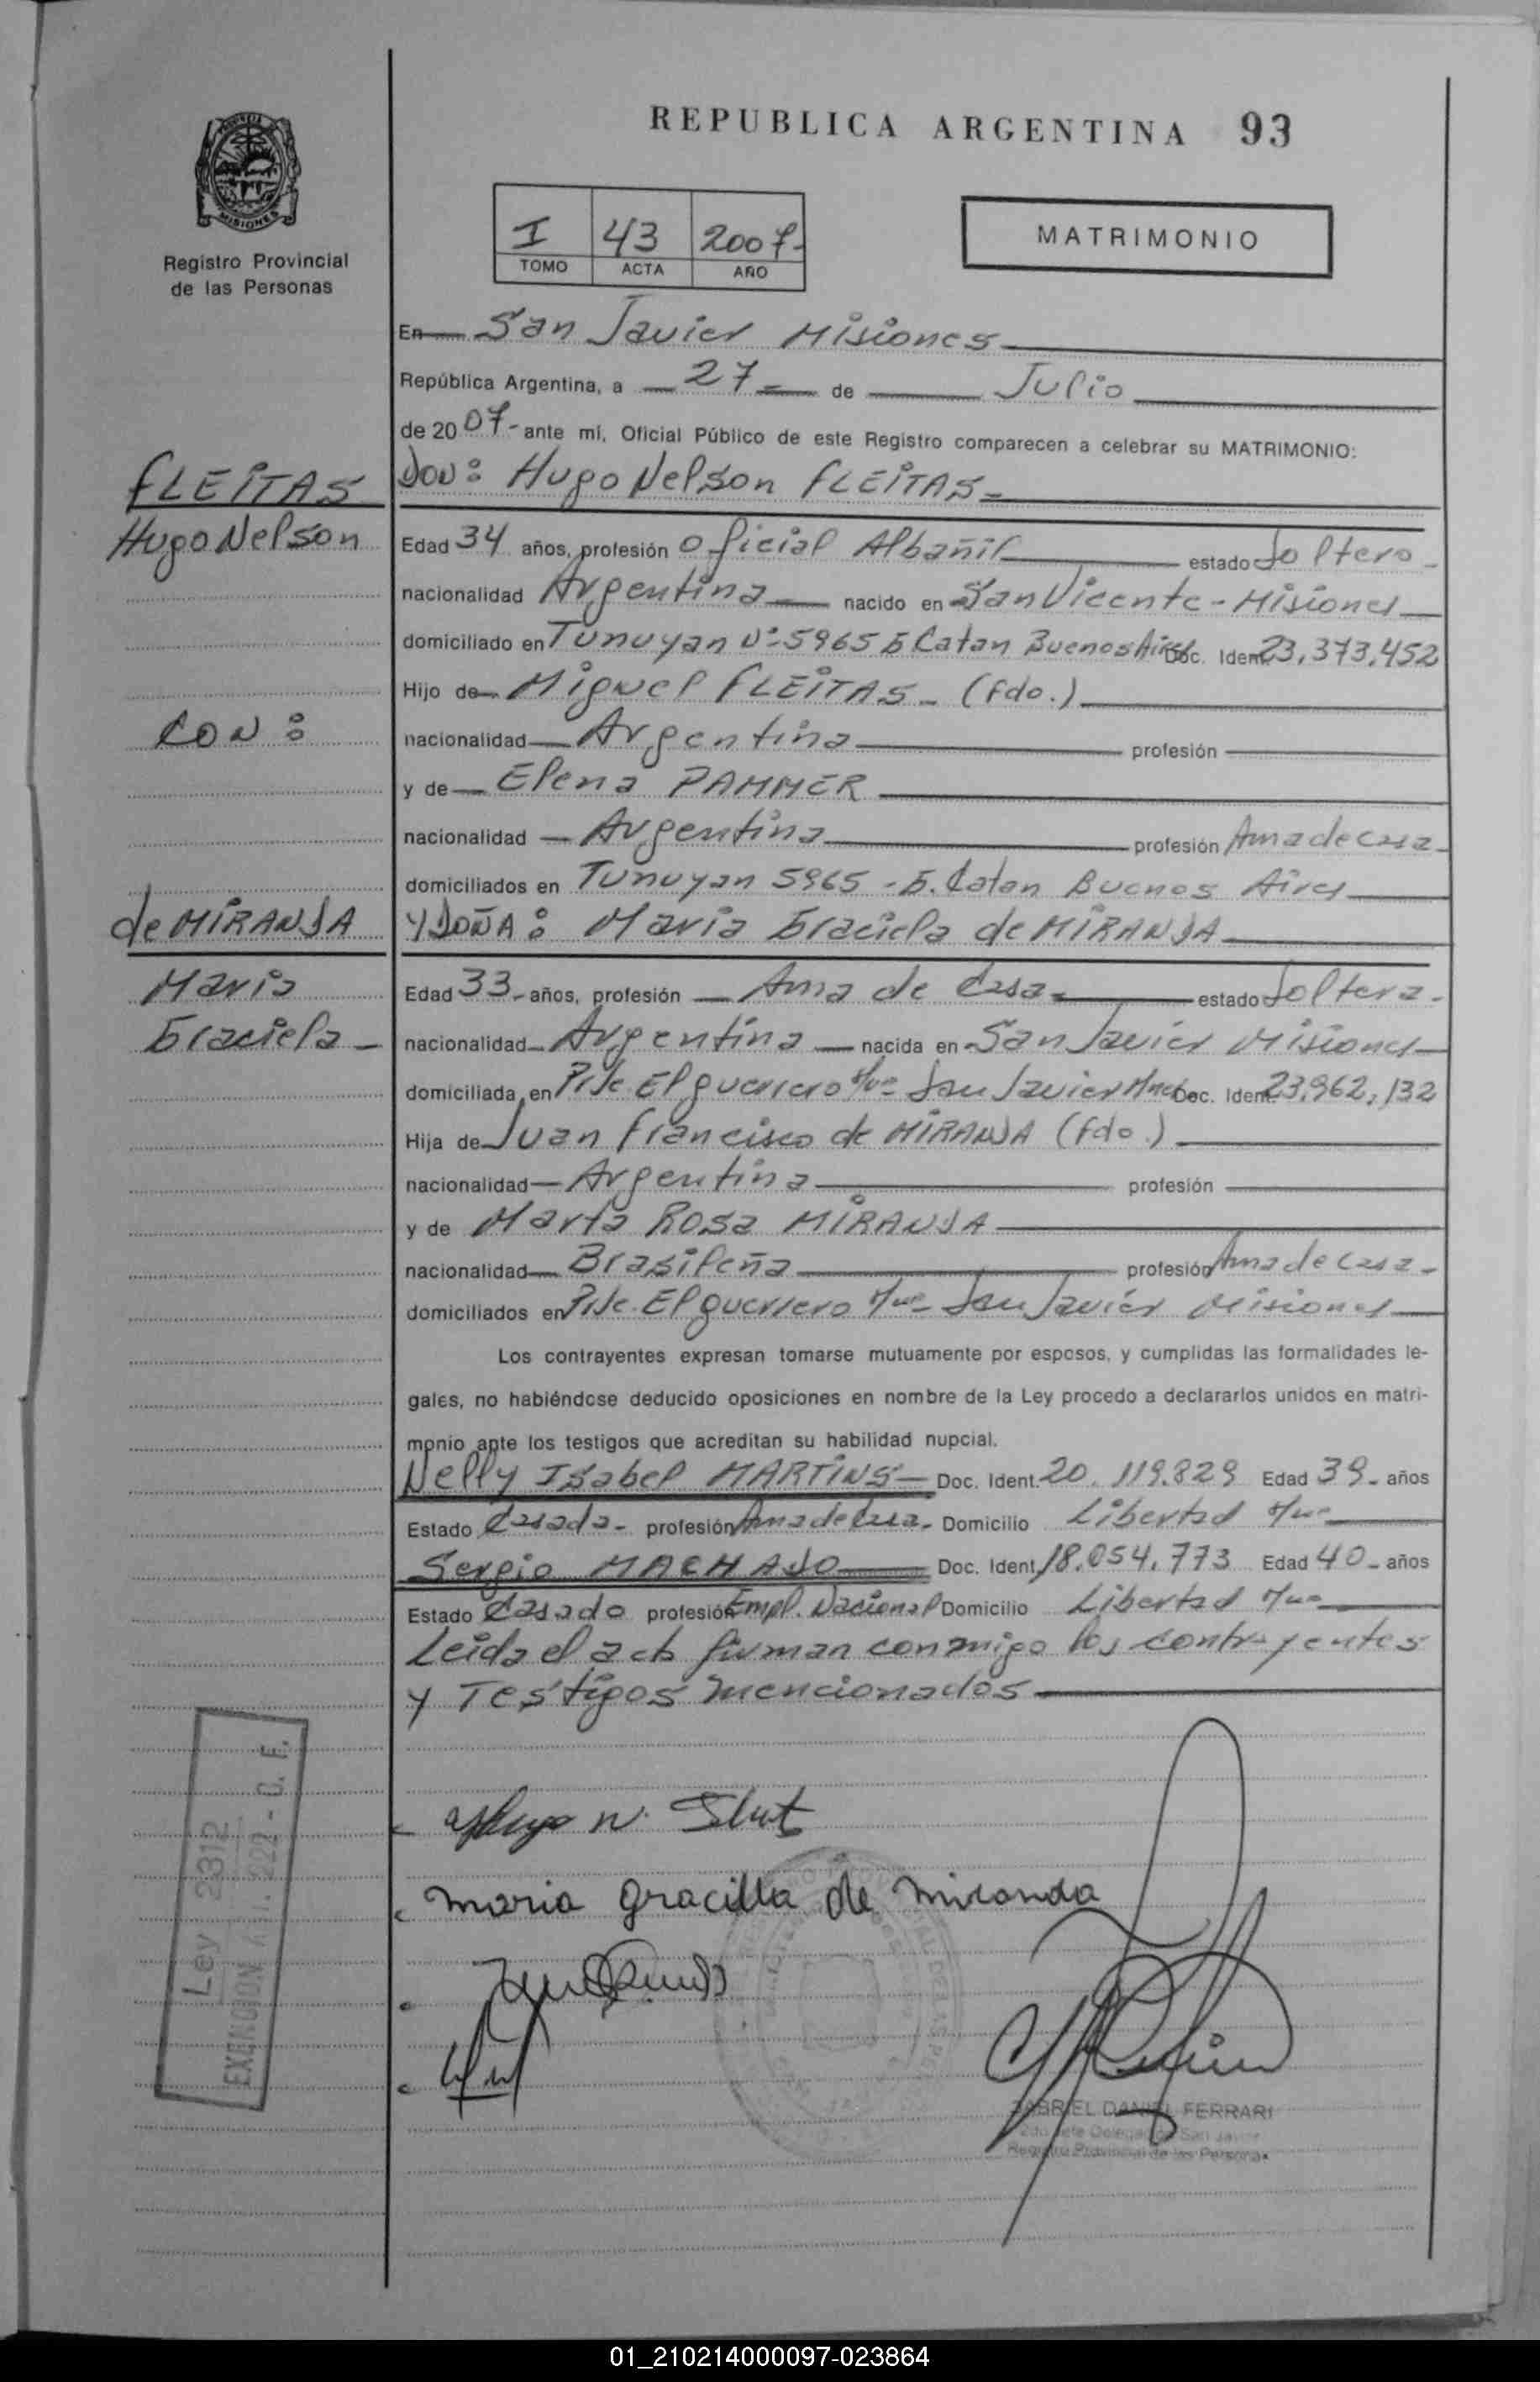 REPUBLICA ARGENTINA 93
PROVINCIA
MISIONES
Registro Provincial
de las Personas
I 43 2007-
TOMO ACTA AÑO
MATRIMONIO
En San Javier Misiones
República Argentina, a 27 de Julio
de 20 07- ante mí, Oficial Público de este Registro comparecen a celebrar su MATRIMONIO:
FLEITAS
DON: Hugo Nelson FLEITAS-
Hugo Nelson
Edad 34 años, profesión Oficial Albañil estado Soltero-
nacionalidad Argentina nacido en San Vicente-Misiones
domiciliado en Tunuyan Nº 5965 G Catan Buenos Aires Doc. Ident. 23,373,452
Hijo de Miguel FLEITAS- (fdo.)
CON:
nacionalidad Argentina profesión
y de Elena PAMMER
nacionalidad Argentina profesión Ama de casa-
domiciliados en Tunuyan 5965 -G. Catan Buenos Aires
de MIRANDA
Y DOÑA: Maria Graciela de MIRANDA
Maria
Graciela-
Edad 33- años, profesión Ama de Casa- estado Soltera-
nacionalidad Argentina nacida en San Javier Misiones
domiciliada en Pje. El guerrero San Javier Mnes Doc. Ident. 23,962,132
Hija de Juan Francisco de MIRANDA (fdo.)
nacionalidad Argentina profesión
y de Marta Rosa MIRANDA
nacionalidad Brasileña profesión Ama de casa-
domiciliados en Pje. El guerrero San Javier Misiones
Los contrayentes expresan tomarse mutuamente por esposos, y cumplidas las formalidades le-
gales, no habiéndose deducido oposiciones en nombre de la Ley procedo a declararlos unidos en matri-
monio ante los testigos que acreditan su habilidad nupcial.
Nelly Isabel MARTINS- Doc. Ident. 20.119.829 Edad 39- años
Estado Casada- profesión Ama de casa- Domicilio Libertad
Sergio MACHADO Doc. Ident 18.054.773 Edad 40- años
Estado Casado profesión Empl. Nacional Domicilio Libertad
Leida el acta firman conmigo los contrayentes
y Testigos mencionados
Ley 2312
EXENCION Art. 222 - C. F.
maria graciela de miranda
GABRIEL DANIEL FERRARI
Registro Provincial de las Personas
01_210214000097-023864